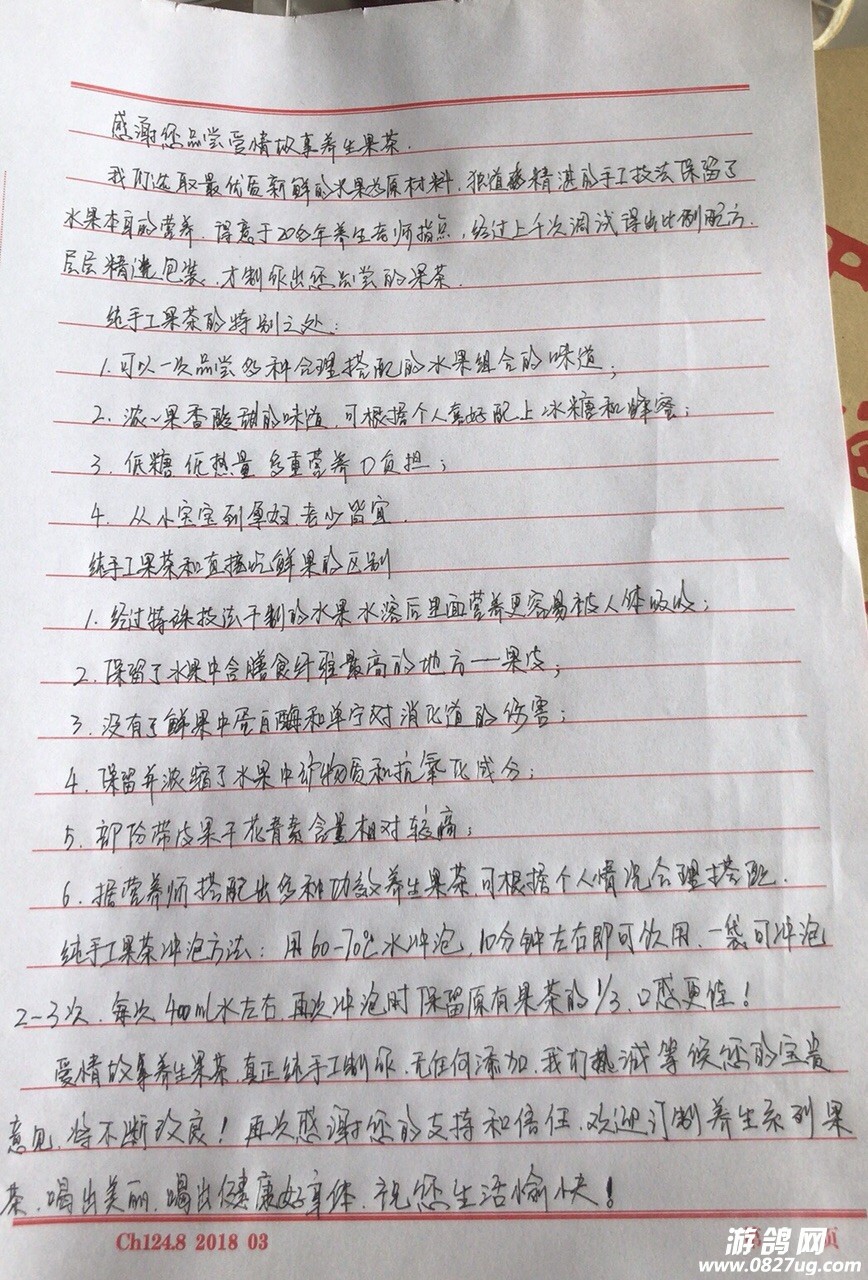 感谢您品尝爱情故事养生果茶.
我们选取最优质新鲜的水果为原材料,独道精湛的手工技法保留了
水果本身的营养.得意于20多年养生老师指点,经过上千次调试得出比例配方.
层层精选包装,才制作出您品尝的果茶.
纯手工果茶的特别之处:
1.可以一次品尝多种合理搭配的水果组合的味道;
2.浓~果香酸甜的味道,可根据个人喜好配上冰糖和蜂蜜;
3.低糖 低热量 多重营养 0负担;
4.从小宝宝到孕妇 老少皆宜.
纯手工果茶和直接吃鲜果的区别
1.经过特殊技法干制的水果水溶后里面营养更容易被人体吸收;
2.保留了水果中含膳食纤维最高的地方——果皮;
3.没有了鲜果中蛋白酶和单宁对消化道的伤害;
4.保留并浓缩了水果中矿物质和抗氧化成分;
5.部份带皮果干花青素含量相对较高;
6.据营养师搭配出多种功效养生果茶,可根据个人情况合理搭配.
纯手工果茶冲泡方法:用60-70℃水冲泡,10分钟左右即可饮用,一袋可冲泡
2-3次,每次400ml水左右,再次冲泡时保留原有果茶的1/3,口感更佳!
爱情故事养生果茶,真正纯手工制作,无任何添加,我们热诚等候您的宝贵
意见,将不断改良!再次感谢您的支持和信任,欢迎订制养生系列果
茶,喝出美丽,喝出健康好身体,祝您生活愉快!
Ch124.8 2018 03
页
游鸽网
www.0827ug.com